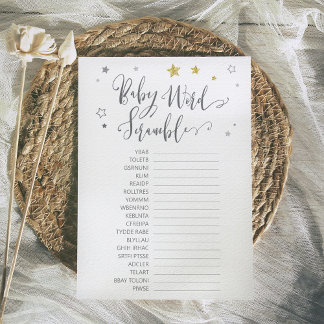 Baby Word
Scramble
YBAB
TOLETB
GSRNUNI
KLIM
REAIDP
ROLLTRES
YOMMM
WBENRNO
KEBLNTA
CFREIMNA
TYDDE RABE
BLYLLAU
GHIH IRHAC
SRTFI PTSSE
ADCLER
TELART
BBAY TOLONI
PIWSE